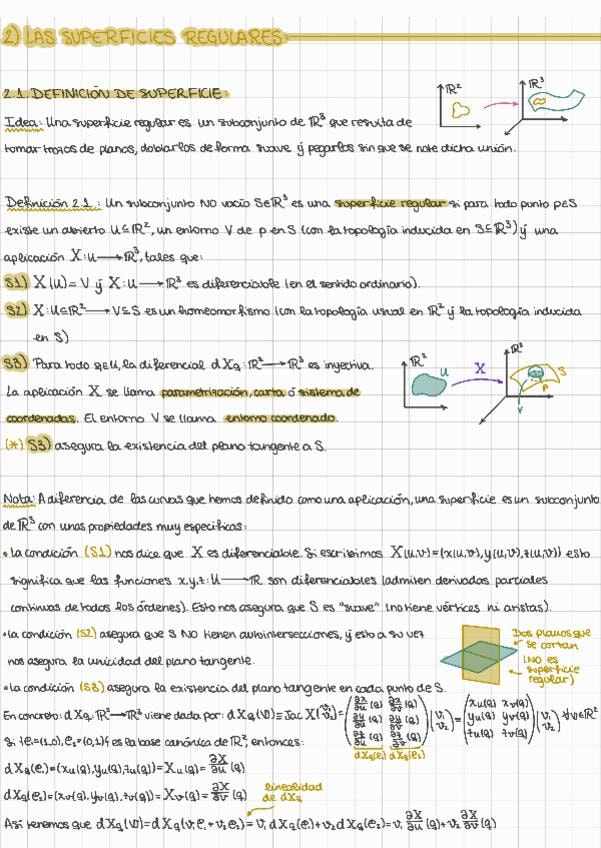 2) LAS SUPERFICIES REGULARES
2.1. DEFINICIÓN DE SUPERFICIE:
ℝ² ℝ³
Idea: Una superficie regular es un subconjunto de ℝ³ que resulta de
tomar trozos de planos, doblarlos de forma suave y pegarlos sin que se note dicha unión.
Definición 2.1: Un subconjunto NO vacío S⊆ℝ³ es una superficie regular si para todo punto p∈S
existe un abierto U⊆ℝ², un entorno V de p en S (con la topología inducida en S⊆ℝ³) y una
aplicación X: U⟶ℝ³, tales que:
S1) X(U)=V y X: U⟶ℝ³ es diferenciable (en el sentido ordinario).
S2) X: U⊆ℝ²⟶V⊆S es un homeomorfismo (con la topología usual en ℝ² y la topología inducida
en S)
S3) Para todo q∈U, la diferencial dX_q: ℝ²⟶ℝ³ es inyectiva.
La aplicación X se llama parametrización, carta o sistema de
coordenadas. El entorno V se llama entorno coordenado.
ℝ² U X ℝ³ S P V
(*) S3) asegura la existencia del plano tangente a S.
Nota: A diferencia de las curvas que hemos definido como una aplicación, una superficie es un subconjunto
de ℝ³ con unas propiedades muy específicas:
• La condición (S1) nos dice que X es diferenciable. Si escribimos X(u,v)=(x(u,v),y(u,v),z(u,v)) esto
significa que las funciones x,y,z: U⟶ℝ son diferenciables (admiten derivadas parciales
continuas de todos los órdenes). Esto nos asegura que S es "suave" (no tiene vértices ni aristas).
• La condición (S2) asegura que S NO tienen autointersecciones, y esto a su vez
nos asegura la unicidad del plano tangente.
Dos planos que
se cortan
(NO es
superficie
regular)
• La condición (S3) asegura la existencia del plano tangente en cada punto de S.
En concreto: dX_q: ℝ²⟶ℝ³ viene dada por: dX_q(v)≡Jac X(v₁ v₂)=(∂x/∂u (q) ∂x/∂v (q) ∂y/∂u (q) ∂y/∂v (q) ∂z/∂u (q) ∂z/∂v (q))(v₁ v₂)=(x_u(q) x_v(q) y_u(q) y_v(q) z_u(q) z_v(q))(v₁ v₂) ∀v∈ℝ²
dX_q(e₁) dX_q(e₂)
Si {e₁=(1,0), e₂=(0,1)} es la base canónica de ℝ², entonces:
dX_q(e₁)=(x_u(q),y_u(q),z_u(q))=X_u(q)=∂X/∂u (q)
dX_q(e₂)=(x_v(q),y_v(q),z_v(q))=X_v(q)=∂X/∂v (q)
linealidad
de dX_q
Así tenemos que dX_q(v)=dX_q(v₁e₁+v₂e₂)=v₁dX_q(e₁)+v₂dX_q(e₂)=v₁ ∂X/∂u (q)+v₂ ∂X/∂v (q)